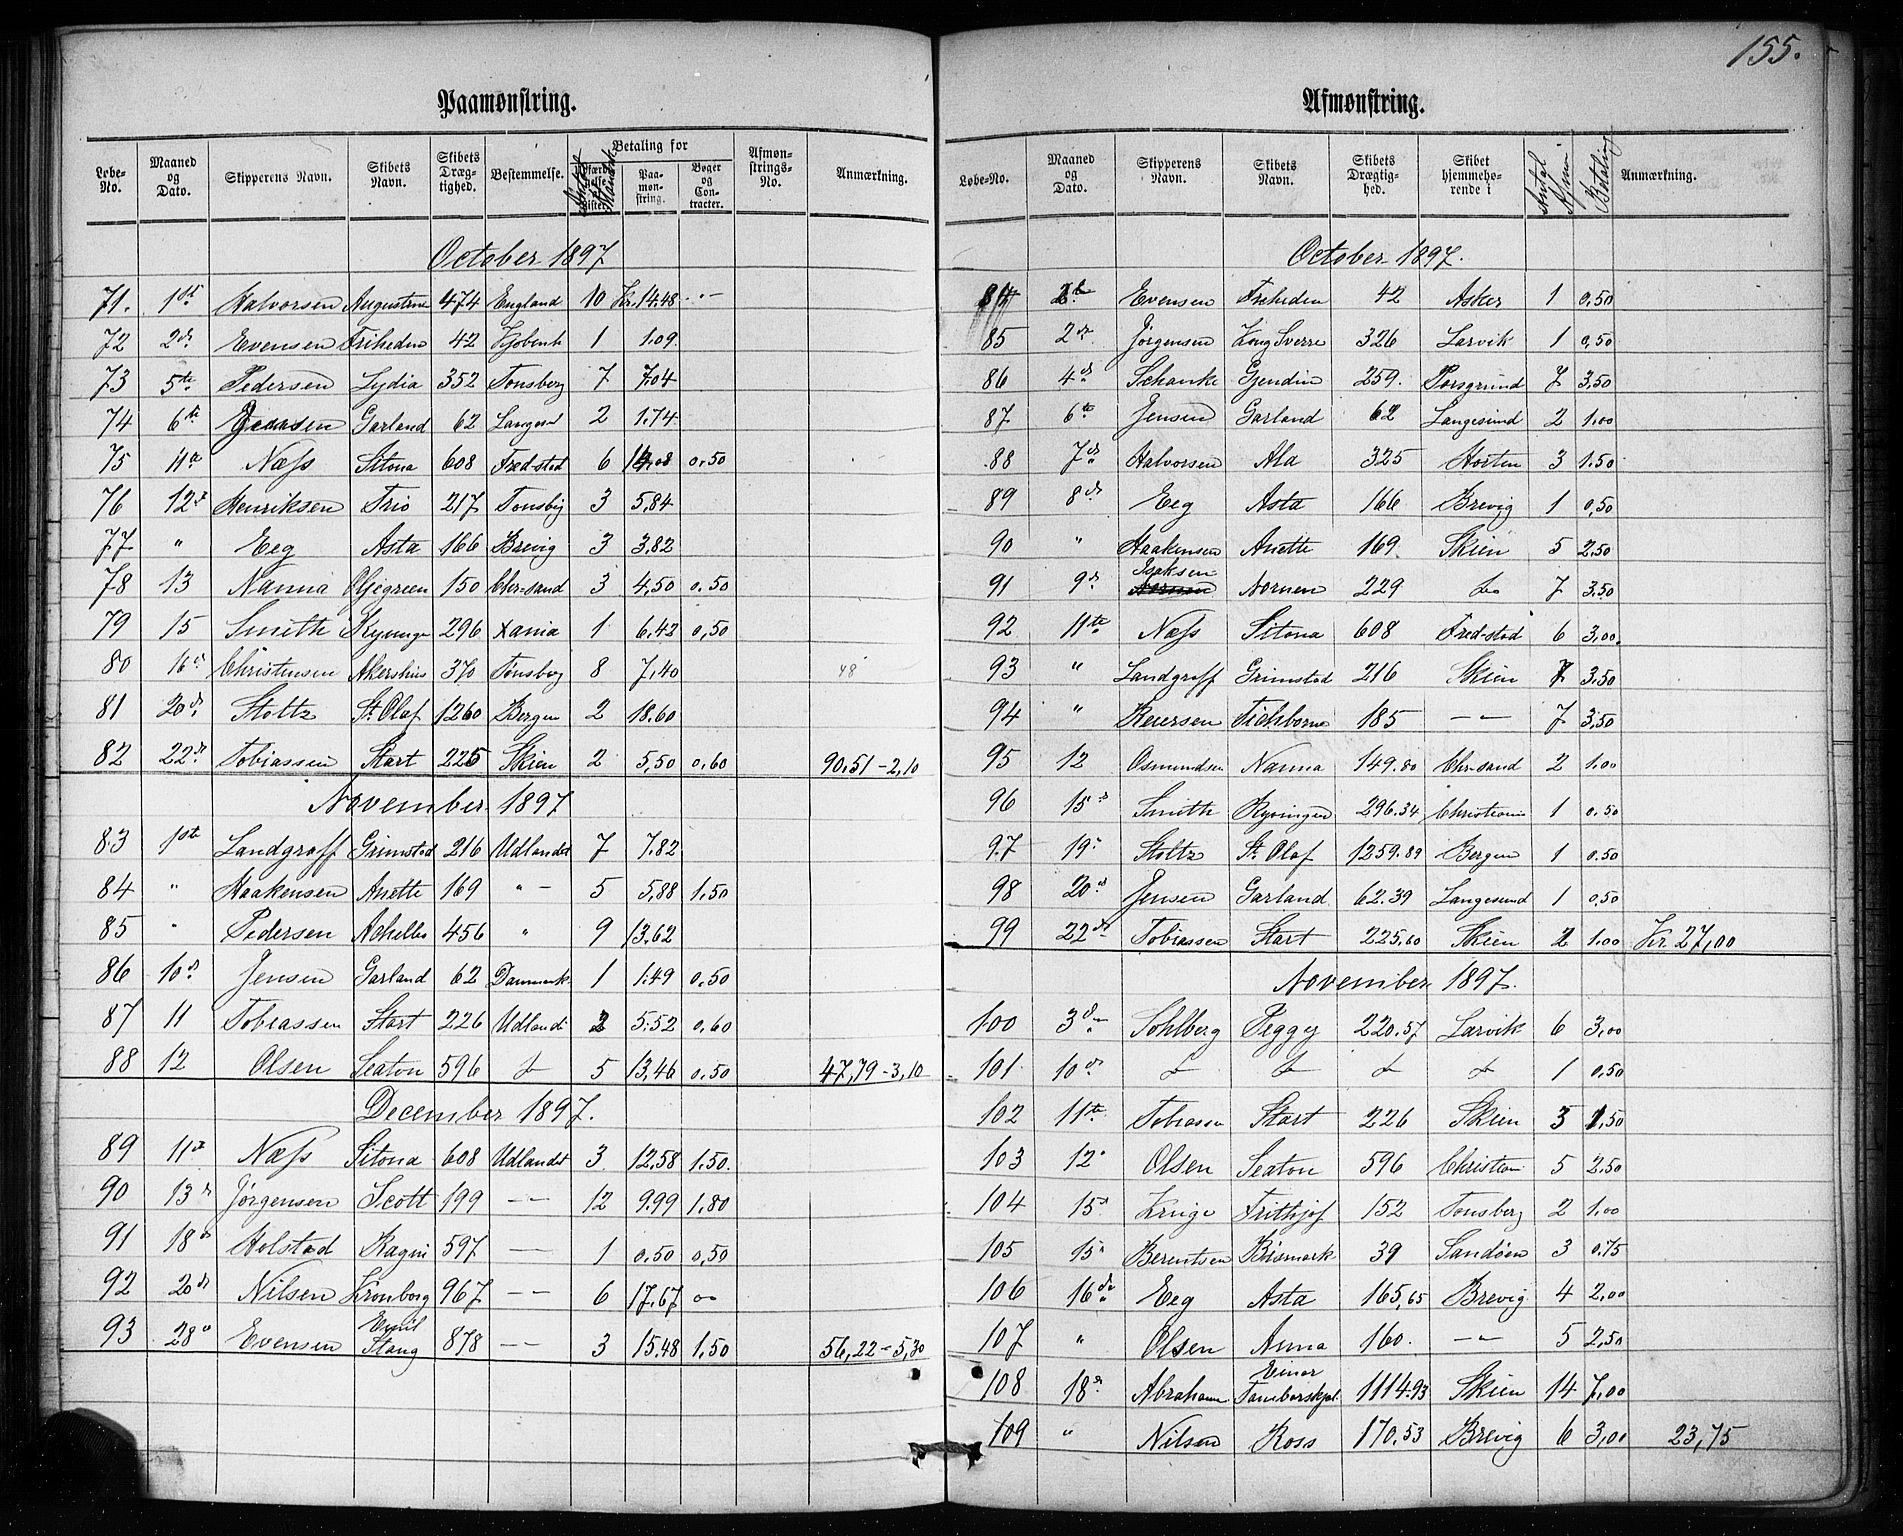 155.
Paamønstring.
Løbe-No. | Maaned og Dato. | Skipperens Navn. | Skibets Navn. | Skibets Drægtighed. | Bestemmelse. | Betaling for | Antal | Paamønstring. | Bøger og Contracter. | Afmønstrings-No. | Anmærkning.
October 1897
71. | 1ste | Halvorsen | Augustine | 474 | England | 10 | Kr. 14.48 | -"-
72 | 2d. | Evensen | Friheden | 42 | Kjøbenh | 1 | 1.09.
73 | 5te | Pedersen | Lydia | 352 | Tonsberg | 7 | 7.04
74 | 6te | Jensen | Garland | 62 | Langesd | 2 | 1.74.
75 | 11te | Næss | Sitona | 608 | Fred-stad | 6 | 14.08 | 0.50
76 | 12te | Henriksen | Trio | 217 | Tonsbg | 3 | 5,84
77 | " | Eeg | Asta | 166 | Brevig | 3 | 3.82
78 | 13 | Nanna | Oljegreen | 150 | Chr=sand | 3 | 4,50 | 0.50
79 | 15 | Smith | Kyvinge | 296 | Xania | 1 | 6.42 | 0,50
80 | 16d | Christensen | Akershus | 370 | Tonsberg | 8 | 7,40 | 48
81 | 20d. | Stoltz | St. Olaf | 1260 | Bergen | 2 | 18.60
82 | 22d. | Tobiassen | Start | 225 | Skien | 2 | 5,50 | 0,60 | 90.51 - 2,10
November 1897
83 | 1ste | Landgraff | Grimstad | 216 | Udlandet | 7 | 7.82
84 | " | Haakensen | Anette | 169 | " - | 5 | 5,88 | 1,50
85 | " | Pedersen | Achelles | 456 | " | 9 | 13.62
86 | 10d | Jensen | Garland | 62 | Danmark | 1 | 1.49 | 0,50
87 | 11 | Tobiassen | Start | 226 | Udland | 2 | 5.52 | 0,60
88 | 12 | Olsen | Seaton | 596 | do | 5 | 13,46 | 0,50 | 47,79 - 3,10
December 1897.
89 | 11te | Næss | Sitona | 608 | Udlandet | 3. | 12,58 | 1.50.
90 | 13d | Jørgensen | Scott | 199 | -"- | 12 | 9.99 | 1,80
91 | 18d | Holstad | Ragni | 597 | -"- | 1 | 0.50 | 0,50
92 | 20d | Nilsen | Kronborg | 967 | -"- | 6 | 17.67 | oo
93 | 28" | Evensen | Emil Stang | 878 | -"- | 3 | 15.48 | 1,50 | 56,22 - 5,30
Afmønstring.
Løbe-No. | Maaned og Dato. | Skipperens Navn. | Skibets Navn. | Skibets Drægtighed. | Skibet hjemmehørende i | Antal | Betaling | Anmærkning.
October 1897.
84 | 1ste | Evensen | Friheden | 42 | Asker | 1 | 0.50
85 | 2den | Jørgensen | Kong Sverre | 326 | Larvik | 1 | 0,50
86 | 4d. | Schanke | Gjendin | 259. | Porsgrund | 7 | 3.50
87 | 6te | Jensen | Garland | 62 | Langesund | 2 | 1.00
88 | 7d. | Halvorsen | Ala | 325 | Horten | 3 | 1.50
89 | 8d. | Eeg | Asta | 166 | Brevig | 1 | 0,50
90 | " | Haakensen | Anette | 169 | Skien | 5 | 2.50
91 | 9d. | Isaksen | Nornen | 229 | do | 7 | 3.50
92 | 11te | Næss | Sitona | 608 | Fred-stad | 6 | 3,00.
93 | " | Landgraff | Grimstad | 216 | Skien | 7 | 3.50
94 | " | Reiersen | Tichborne | 185 | -"- | 7 | 3,50
95 | 12 | Osmundsen | Nanna | 149.80 | Chr-sand | 2 | 1.00
96 | 15d | Smith | Kyvingen | 296.34 | Christiania | 1 | 0.50
97 | 19. | Stoltz | St. Olaf | 1259.89 | Bergen | 1 | 0.50
98 | 20d | Jensen | Garland. | 62.39 | Langesund | 1 | 0,50
99 | 22d | Tobiassen | Start | 225,60 | Skien | 2 | 1.00 | Kr 27,00
November 1897.
100 | 3den | Sohlberg | Peggy | 220.57 | Larvik | 6 | 3,00
101 | 10d. | do | do | do | do | 1 | 0,50
102 | 11te | Tobiassen | Start | 226 | Skien | 3 | 1,50
103 | 12. | Olsen | Seaton | 596 | Christiani | 5 | 2.50
104 | 15d | Kruge | Frithjof | 152 | Tonsberg | 2 | 1.00
105 | 15" | Berentsen | Bismark | 39 | Sandøen | 3 | 0.75
106 | 16de | Eeg | Asta | 165,65 | Brevig | 4 | 2,00
107 | " | Olsen | Anna | 160. | -"- | 5 | 2,50
108 | 18d. | Abrahamsen | Einar Tamberskjel. | 1114.93 | Skien | 14 | 7,00
109 | " | Nilsen | Ross | 170.53 | Brevig | 6 | 3,00 | 23,75